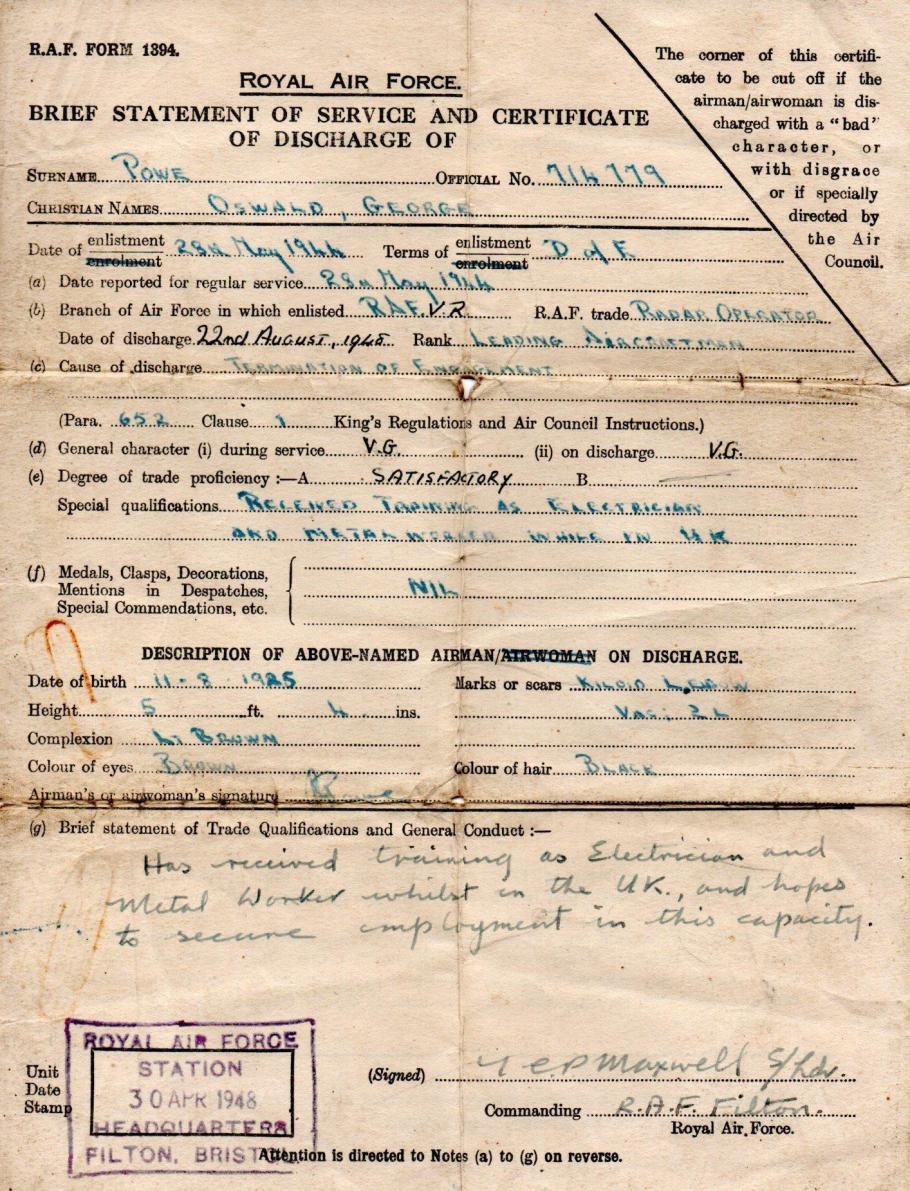 R.A.F. FORM 1394.
ROYAL AIR FORCE.
BRIEF STATEMENT OF SERVICE AND CERTIFICATE
OF DISCHARGE OF
The corner of this certifi-
cate to be cut off if the
airman/airwoman is dis-
charged with a "bad"
character, or
with disgrace
or if specially
directed by
the Air
Council.
SURNAME POWE OFFICIAL No. 714779
CHRISTIAN NAMES OSWALD, GEORGE
Date of enlistment enrolment 28th May 1944 Terms of enlistment enrolment D of E
(a) Date reported for regular service 28th May 1944
(b) Branch of Air Force in which enlisted RAF.V.R R.A.F. trade RADAR OPERATOR
Date of discharge 22nd AUGUST, 1948 Rank LEADING AIRCRAFTMAN
(c) Cause of discharge TERMINATION OF ENGAGEMENT
(Para. 652 Clause 1 King's Regulations and Air Council Instructions.)
(d) General character (i) during service V.G. (ii) on discharge V.G.
(e) Degree of trade proficiency :—A SATISFACTORY B —
Special qualifications RECEIVED TRAINING AS ELECTRICIAN
AND METAL WORKER WHILE IN UK
(f) Medals, Clasps, Decorations,
Mentions in Despatches,
Special Commendations, etc.
NIL
DESCRIPTION OF ABOVE-NAMED AIRMAN/AIRWOMAN ON DISCHARGE.
Date of birth 11-8-1925 Marks or scars
Height 5 ft. 4 ins. Vac: 2 L
Complexion Lt BROWN
Colour of eyes BROWN Colour of hair BLACK
Airman's or airwoman's signature
(g) Brief statement of Trade Qualifications and General Conduct :—
Has received training as Electrician and
Metal Worker whilst in the UK., and hopes
to secure employment in this capacity.
Unit
Date
Stamp
ROYAL AIR FORCE
STATION
30 APR 1948
HEADQUARTERS
FILTON, BRISTOL
(Signed) Maxwell S/Ldr.
Commanding R.A.F. Filton.
Royal Air Force.
Attention is directed to Notes (a) to (g) on reverse.